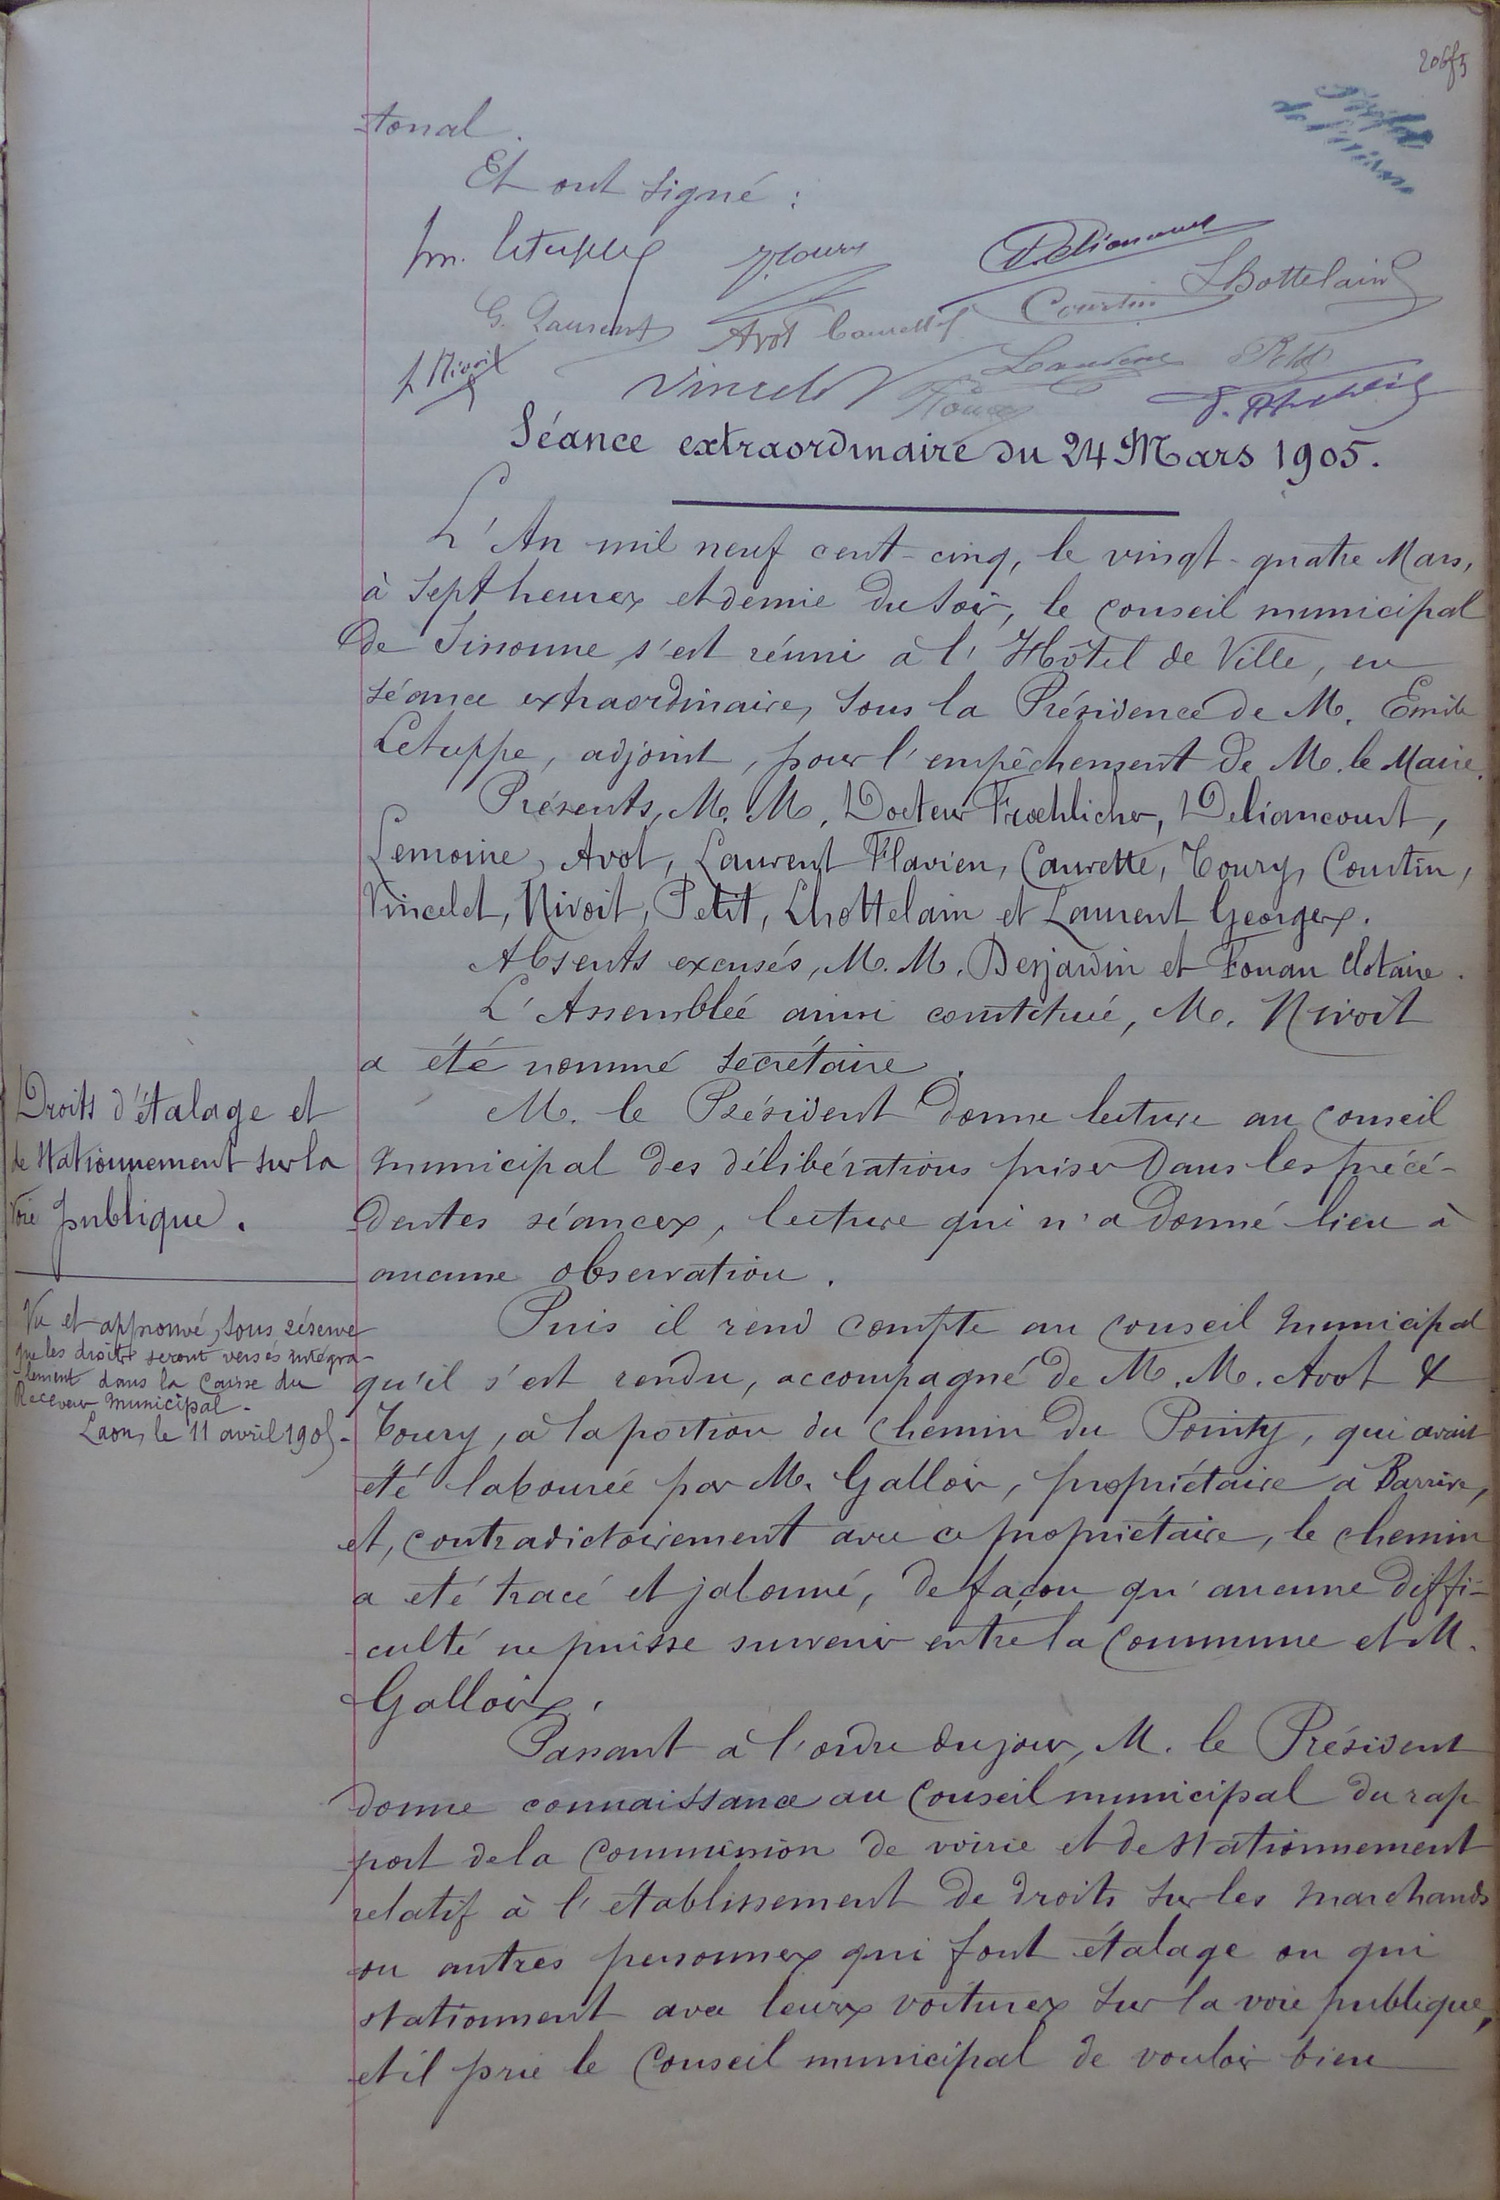 -tonal.
Et ont signé :
Em. Letuppe Toury Deliancourt
G. Laurent Avot Caurette Courtin Lhottelain
Nivoit Vincelet Lemoine Petit
Séance extraordinaire du 24 Mars 1905.
L'An mil neuf cent-cinq, le vingt-quatre Mars,
à sept heures et demie du soir, le conseil municipal
de Sissonne s'est réuni à l'Hôtel de Ville, en
séance extraordinaire, sous la Présidence de M. Emile
Letuppe, adjoint, pour l'empêchement de M. le Maire.
Présents, M. M. Docteur Froehlicher, Deliancourt,
Lemoine, Avot, Laurent Flavien, Caurette, Toury, Courtin,
Vincelet, Nivoit, Petit, Lhottelain et Laurent Georges.
Absents excusés, M. M. Desjardin et Fouan Clotaire.
L'Assemblée ainsi constituée, M. Nivoit
a été nommé secrétaire.
Droits d'étalage et
de stationnement sur la
voie publique.
M. le Président donne lecture au Conseil
municipal des délibérations prises dans les précé-
-dentes séances, lecture qui n'a donné lieu à
aucune observation.
Vu et approuvé, sous réserve
que les droits seront versés intégra-
-lement dans la Caisse du
Receveur municipal.
Laon, le 11 avril 1905.
Puis il rend compte au Conseil municipal
qu'il s'est rendu, accompagné de M. M. Avot &
Toury, à la portion du chemin du Pointy, qui avait
été labourée par M. Gallois, propriétaire à Barrive,
et, contradictoirement avec ce propriétaire, le chemin
a été tracé et jalonné, de façon qu'aucune diffi-
-culté ne puisse survenir entre la Commune et M.
Gallois.
Passant à l'ordre du jour, M. le Président
donne connaissance au Conseil municipal du rap
-port de la Commission de voirie et de stationnement
relatif à l'établissement de droits sur les marchands
ou autres personnes qui font étalage ou qui
stationnent avec leurs voitures sur la voie publique,
et il prie le Conseil municipal de vouloir bien